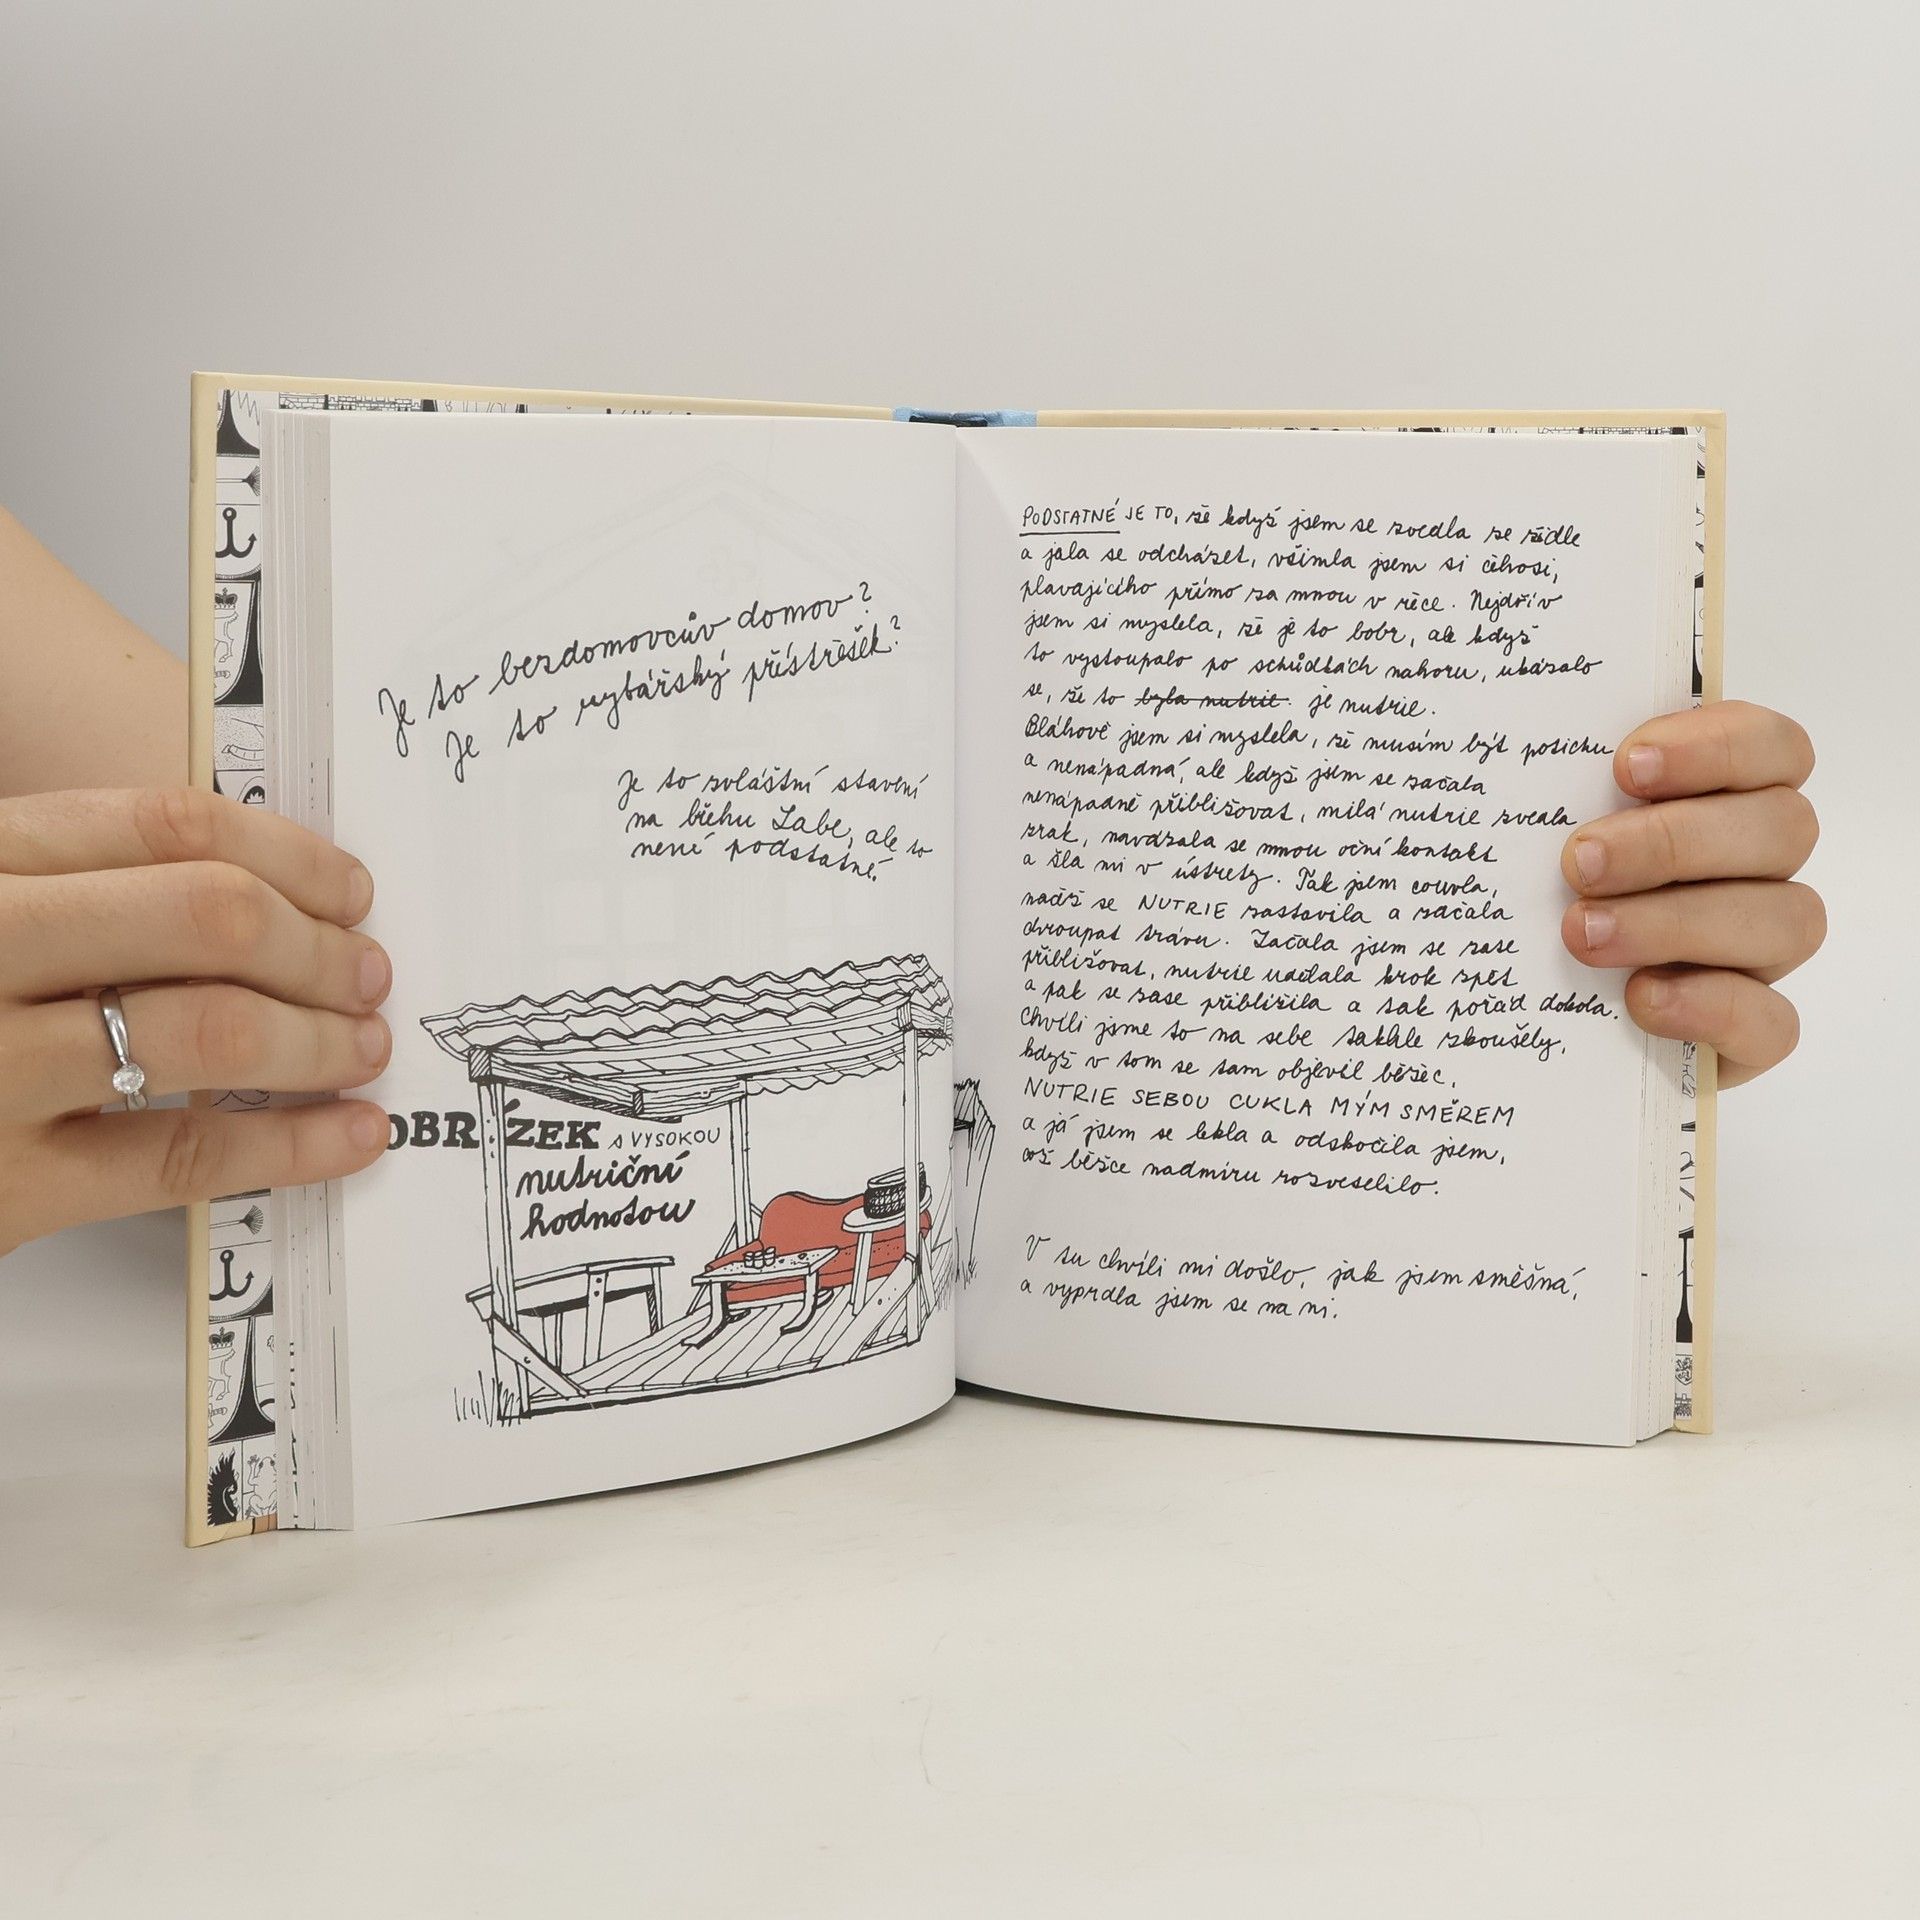 Je to bezdomovcův domov?
Je to rybářský přístřešek?
Je to zvláštní stavení
na břehu Labe, ale to
není podstatné.
OBRÁZEK s VYSOKOU
nutriční
hodnotou
PODSTATNÉ JE TO, že když jsem se zvedla ze židle
a jala se odcházet, všimla jsem si čehosi,
plavajícího přímo za mnou v řece. Nejdřív
jsem si myslela, že je to bobr, ale když
to vystoupalo po schůdkách nahoru, ukázalo
se, že to byla nutrie. je nutrie.
Bláhově jsem si myslela, že musím být potichu
a nenápadná, ale když jsem se začala
nenápadně přibližovat, milá nutrie zvedla
zrak, navázala se mnou oční kontakt
a šla mi v ústrety. Tak jsem couvla,
načž se NUTRIE zastavila a začala
dvoupat trávu. Začala jsem se zase
přibližovat, nutrie udělala krok zpět
a pak se zase přiblížila a tak pořád dokola.
Chvíli jsme to na sebe takhle zkoušely,
když v tom se tam objevil běžec.
NUTRIE SEBOU CUKLA MÝM SMĚREM
a já jsem se lekla a odskočila jsem,
což běžce nadmíru rozveselilo.
V tu chvíli mi došlo, jak jsem směšná,
a vyprdla jsem se na ni.